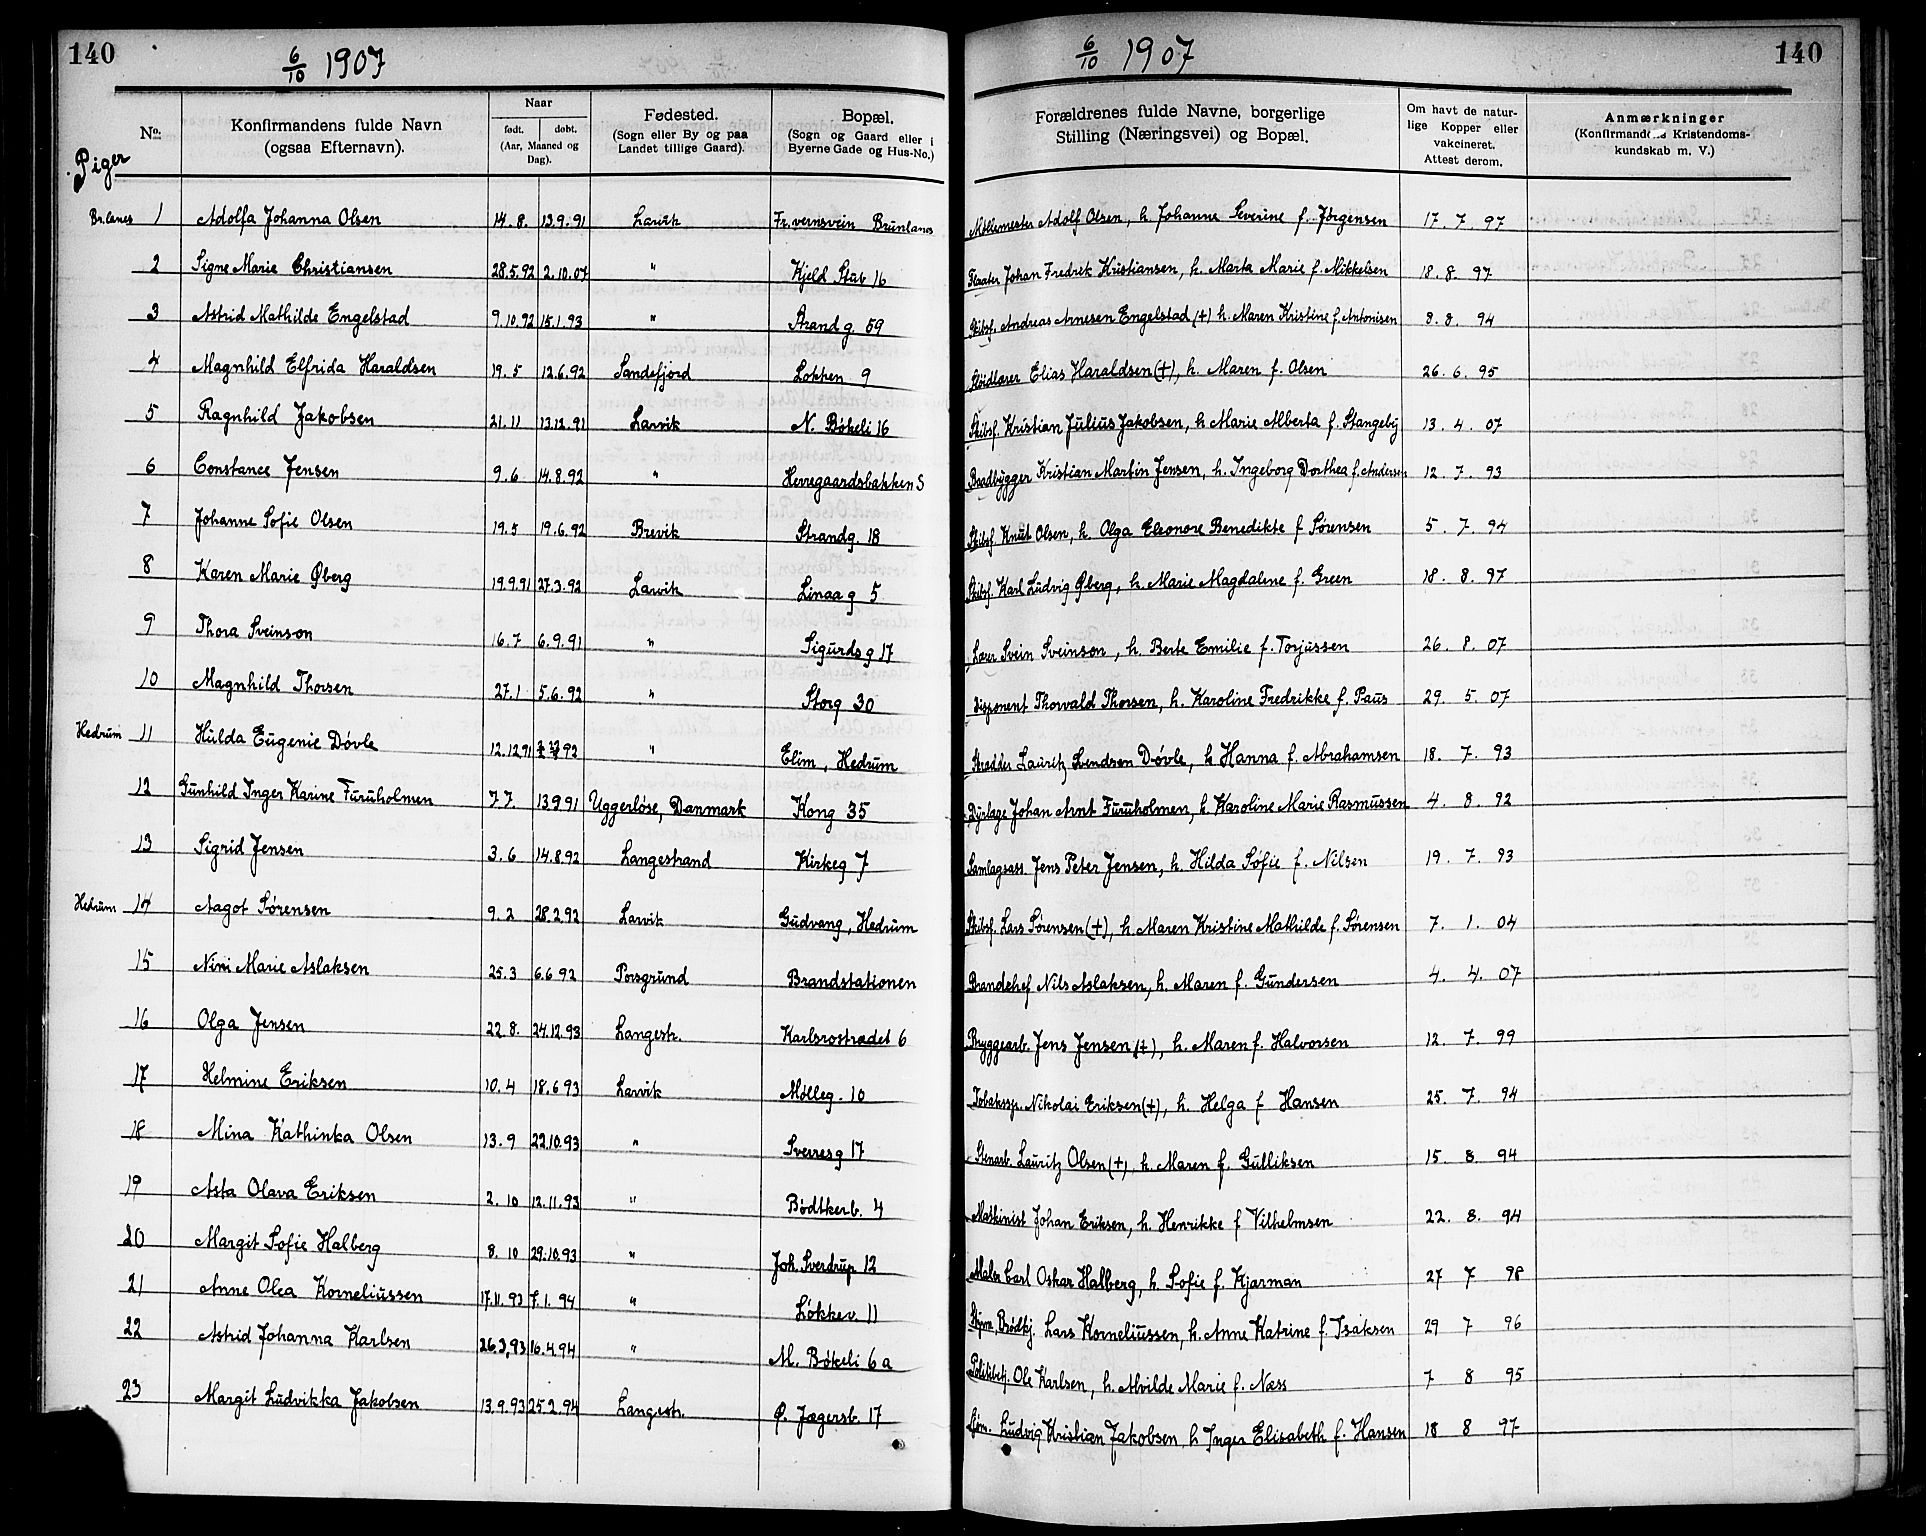 140
6/10 1907
No.
Konfirmandens fulde Navn
(ogsaa Efternavn).
Naar
født. døbt.
(Aar, Maaned og
Dag).
Fødested.
(Sogn eller By og paa
Landet tillige Gaard).
Bopæl.
(Sogn og Gaard eller i
Byerne Gade og Hus-No.)
Piger
Br.lanes 1 Adolfa Johanna Olsen 14.8. 13.9.91 Larvik Fr.vernsvein Brunlanes
2 Signe Marie Christiansen 28.5.92 2.10.07 " Kjeld Stub 16
3 Astrid Mathilde Engelstad 9.10.92 15.1.93 " Strandg. 59
4 Magnhild Elfrida Haraldsen 19.5 12.6.92 Sandefjord Løkken 9
5 Ragnhild Jakobsen 21.11 13.12.91 Larvik N. Bøkeli 16
6 Constance Jensen 9.6 14.8.92 " Herregaardsbakken 5
7 Johanne Sofie Olsen 19.5 19.6.92 Brevik Strandg. 18
8 Karen Marie Øberg 19.9.91 27.3.92 Larvik Linaag 5
9 Thora Sveinson 16.7 6.9.91 " Sigurdsg 17
10 Magnhild Thorsen 27.1 5.6.92 " Storg 30
Hedrum 11 Hulda Eugenie Døvle 12.12.91 92 " Elim, Hedrum
12 Gunhild Inger Karine Furuholmen 7.7 13.9.91 Uggerløse, Danmark Kong 35
13 Sigrid Jensen 3.6 14.8.92 Langestrand Kirkeg 7
Hedrum 14 Aagot Sørensen 9.2 28.2.92 Larvik Gudvang, Hedrum
15 Nini Marie Aslaksen 25.3 6.6.92 Porsgrund Brandstationen
16 Olga Jensen 22.8. 24.12.93 Langestr. Karlsrostrædet 6
17 Helmine Eriksen 10.4 18.6.93 Larvik Mølleg. 10
18 Mina Kathinka Olsen 13.9 22.10.93 " Sverresg 17
19 Asta Olava Eriksen 2.10 12.11.93 " Bødtkerb. 4
20 Margit Sofie Halberg 8.10 29.10.93 " Joh. Sverdrup 12
21 Anne Olea Korneliussen 17.11.93 7.1.94 " Løkkev. 11
22 Astrid Johanna Karlsen 26.3,93 16.4.94 " M. Bøkeli 6a
23 Margit Ludvikka Jakobsen 13.9.93 25.2.94 Langestr. Ø. Jægersb. 17
6/10 1907
140
Forældrenes fulde Navne, borgerlige
Stilling (Næringsvei) og Bopæl.
Om havt de natur-
lige Kopper eller
vakcineret.
Attest derom.
Anmærkninger
(Konfirmandens Kristendoms-
kundskab m. V.)
Møllemester Adolf Olsen, h. Johanne Severine f. Jørgensen 17. 7. 97
Johan Fredrik Kristiansen, h. Marta Marie f. Mikkelsen 18. 8. 97
Skibsf. Andreas Arnesen Engelstad (+) h. Maren Kristine f. Antonisen 8. 8. 94
Sløidlærer Elias Haraldsen (+), h. Maren f. Olsen 26. 6. 95
Skibsf. Kristian Julius Jakobsen, h Marie Alberta f. Stangeby 13. 4. 07
Baadbygger Kristian Martin Jensen, h. Ingeborg Dorthea f. Andersen 12. 7. 93
Skibsf. Knut Olsen, h. Olga Eleonore Benedikte f Sørensen 5. 7. 94
Skibsf. Karl Ludvig Øberg, h. Marie Magdalene f. Green 18. 8. 97
Lærer Svein Sveinson, h. Berte Emilie f. Torjussen 26. 8. 07
Disponent Thorvald Thorsen, h. Karoline Fredrikke f. Paus 29. 5. 07
Skrædder Lauritz Svendsen Døvle, h Hanna f. Abrahamsen 18. 7. 93
Dyrlæge Johan Arnt Furuholmen, h. Karoline Marie Rasmussen 4. 8. 92
Samlagsass. Jens Peter Jensen, h. Hilda Sofie f. Nilsen 19. 7. 93
Skibsf. Lars Sørensen (+), h. Maren Kristine Mathilde f. Sørensen 7. 1. 04
Brandchef Nils Aslaksen, h. Maren f. Gundersen 4. 4. 07
Bryggearb. Jens Jensen (+), h. Maren f. Halvorsen 12. 7. 99
Tobaksp. Nikolai Eriksen (+), h. Helga f Hansen 25. 7. 94
Stenarb. Lauritz Olsen (+), h. Maren f. Gulliksen 15. 8. 94
Maskinist Johan Eriksen, h. Henrikke f Vilhelmsen 22. 8. 94
Maler Carl Oskar Halberg, h. Sofie f. Kjarman 27 7 98
Lars Korneliussen, h. Anne Katrine f. Isaksen 29 7 96
Politibetj. Ole Karlsen, h. Alvilde Marie f. Næss 7 8 95
Sjøm. Ludvig Kristian Jakobsen h Inger Elisabeth f. Hansen 18 8 97